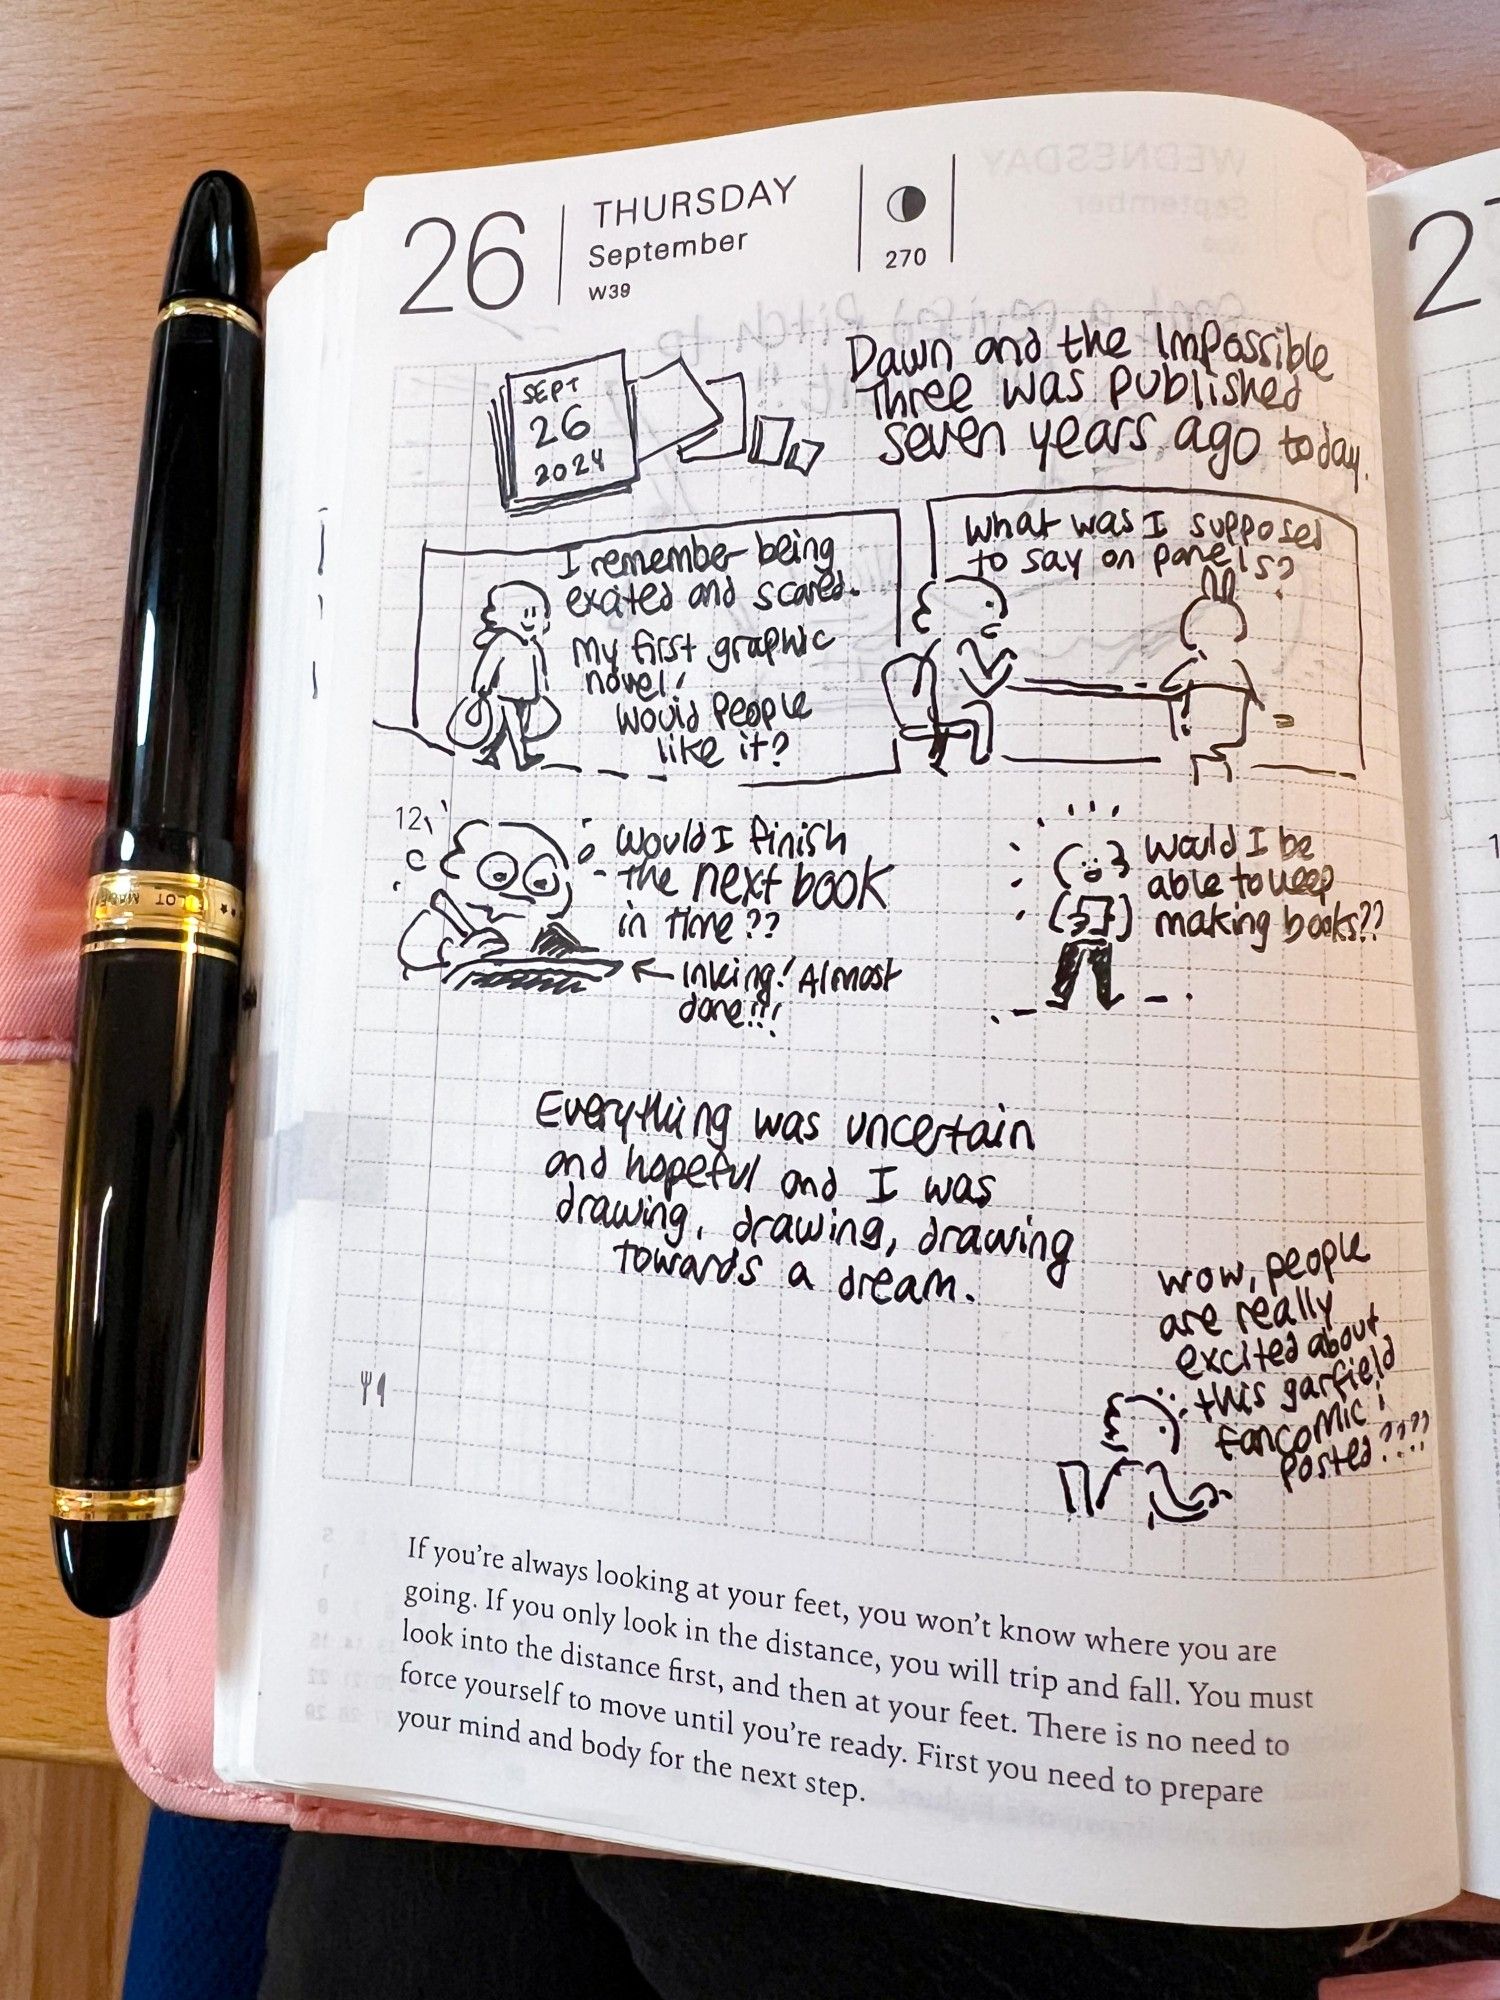 26
THURSDAY
September
W39
270
27
SEPT
26
2024
Dawn and the Impossible
Three was published
seven years ago today.
I remember being
excited and scared.
My first graphic
novel!
Would people
like it?
What was I supposed
to say on panels?
12
Would I finish
the next book
in time??
← Inking! Almost
done!!!
Would I be
able to keep
making books??
Everything was uncertain
and hopeful and I was
drawing, drawing, drawing
towards a dream.
wow, people
are really
excited about
this garfield
fancomic i
posted????
If you're always looking at your feet, you won't know where you are
going. If you only look in the distance, you will trip and fall. You must
look into the distance first, and then at your feet. There is no need to
force yourself to move until you're ready. First you need to prepare
your mind and body for the next step.